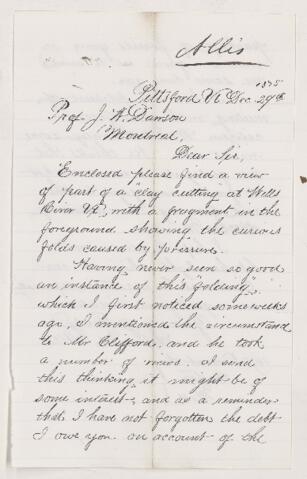 Allis
1875
Pittsford Vt Dec. 29th
Prof J. W. Dawson
Montreal,
Dear Sir,
Enclosed please find a view
of part of a "clay cutting" at Wells
River Vt, with a fragment in the
foreground showing the curious
folds caused by pressure.
Having never seen so good
an instance of this "folding",
which I first noticed some weeks
ago, I mentioned the circumstance
to Mr Clifford, and he took
a number of views. I send
this thinking it might be of
some interest, and as a reminder
that I have not forgotten the debt
I owe you on account of the